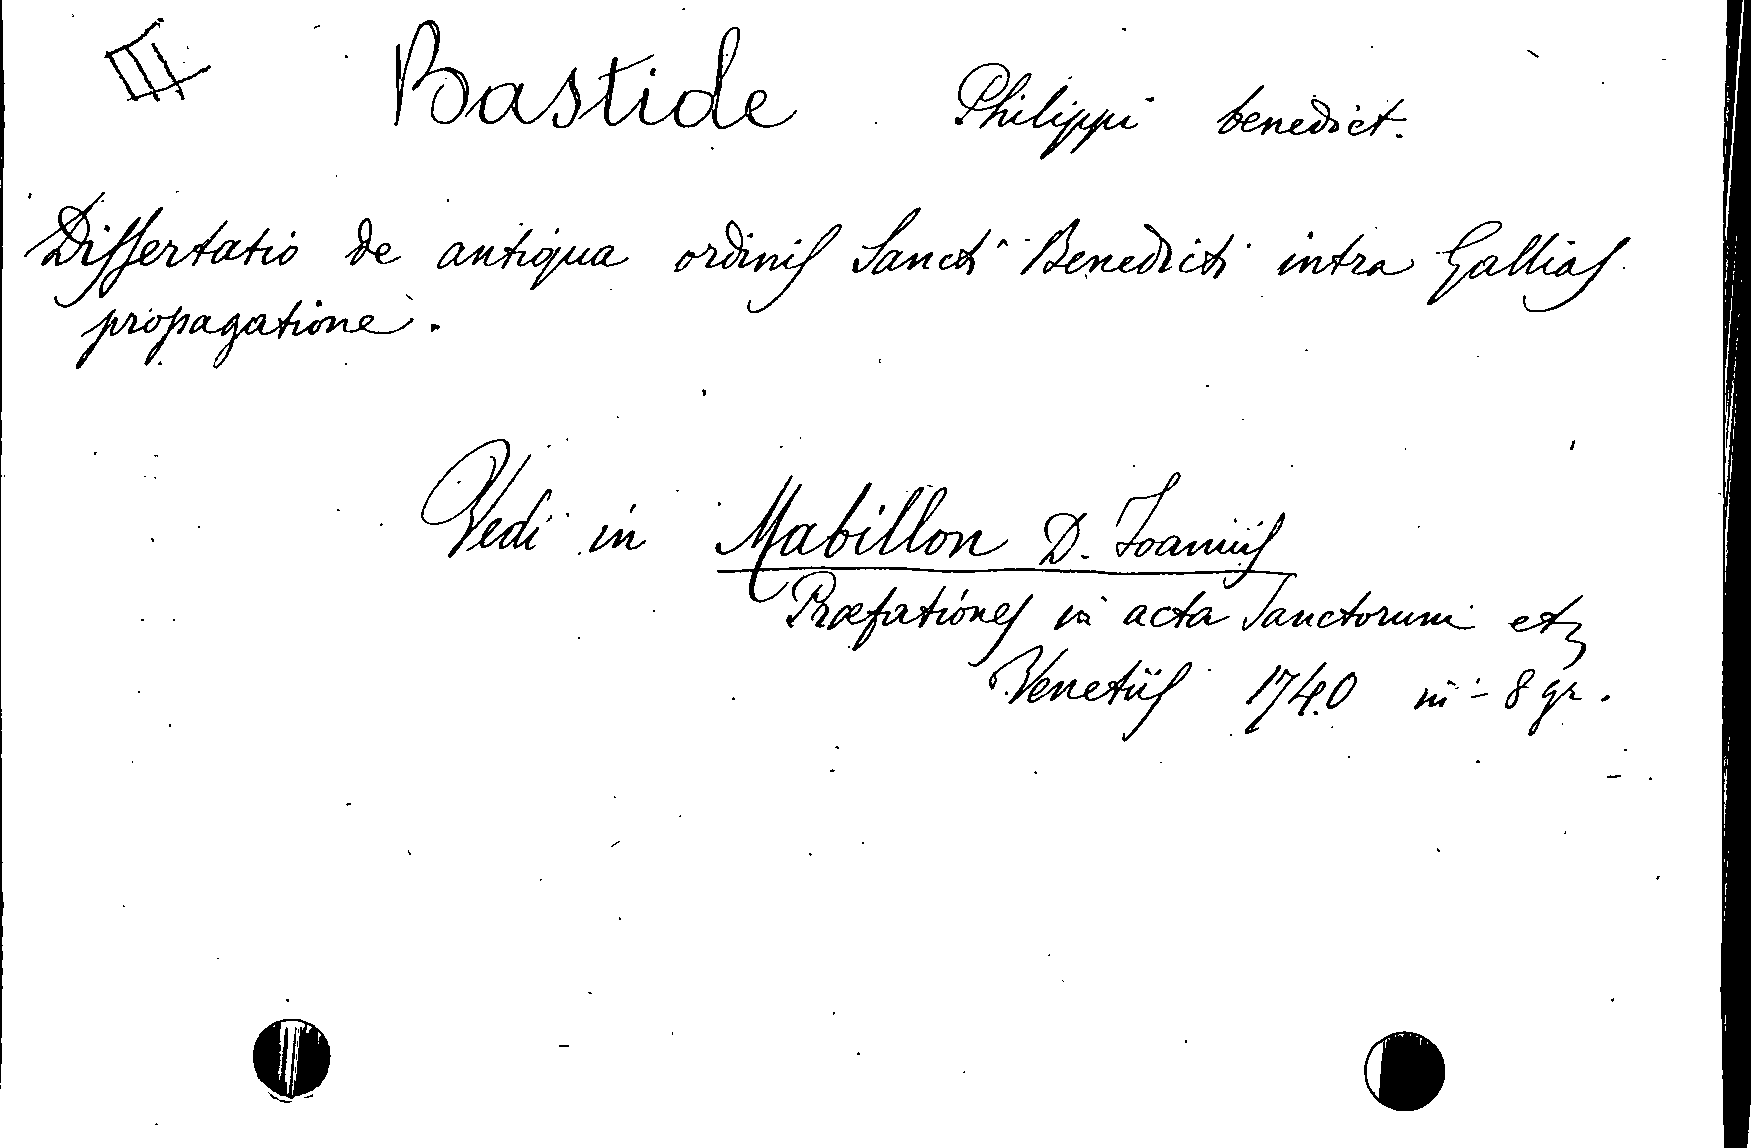 III Bastide Philippi benedict.
Dissertatio de antiqua ordinis Sancti Benedicti intra Gallias
propagatione.
Vedi in Mabillon D. Joannis
Præfationes in acta Sanctorum etz
Venetiis 1740 in-8 gr.